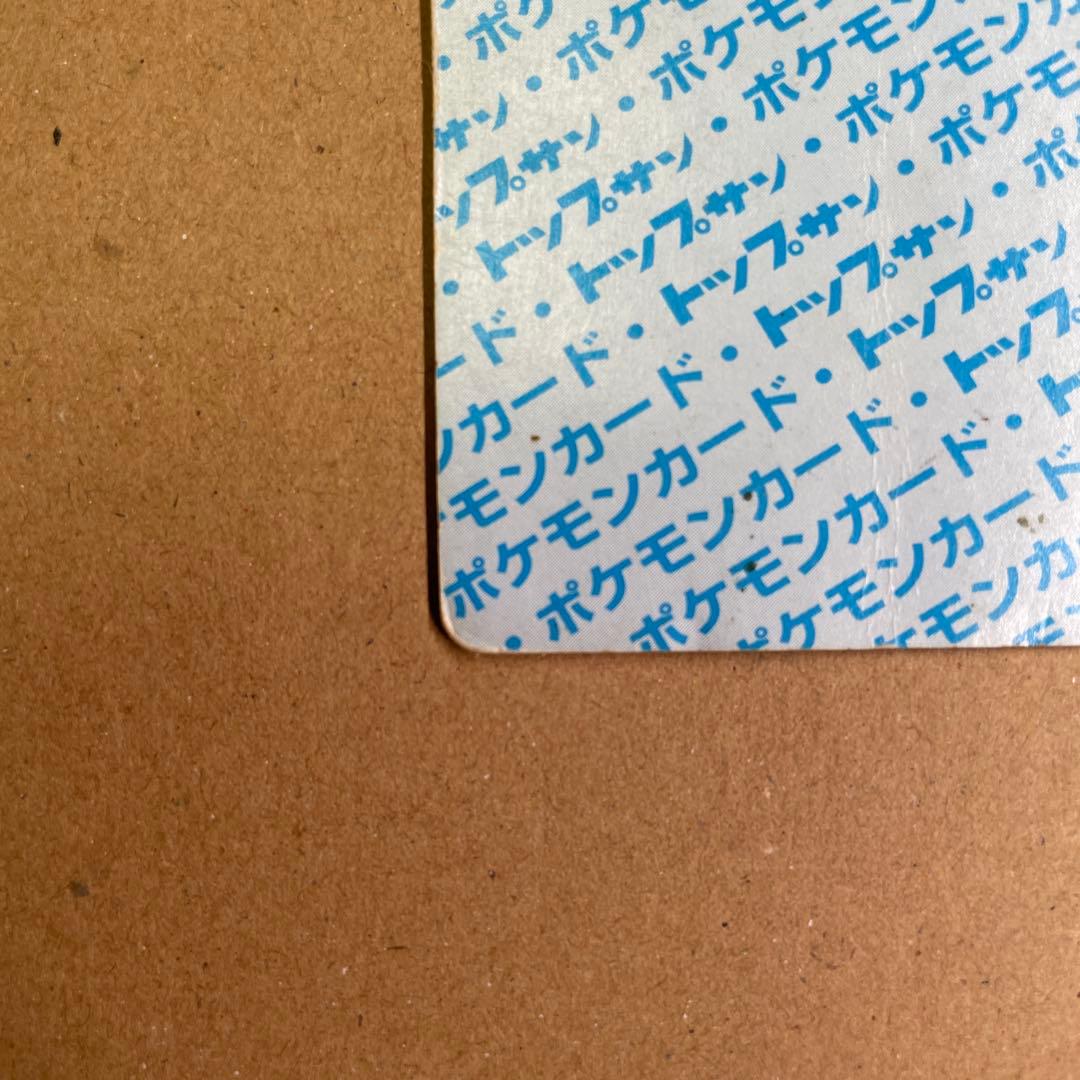 ・ポケ
サン・ポケモ
ップサン・ポケモン
・トップサン・ポケモン
ード・トップサン・ポケモンカ
ンカード・トップサン・ポケモ
モンカード・トップサン・ポ
ポケモンカード・トップサン
・ポケモンカード・トップ
ポケモンカード・ト
ポケモンカード
ケモンカ
モ